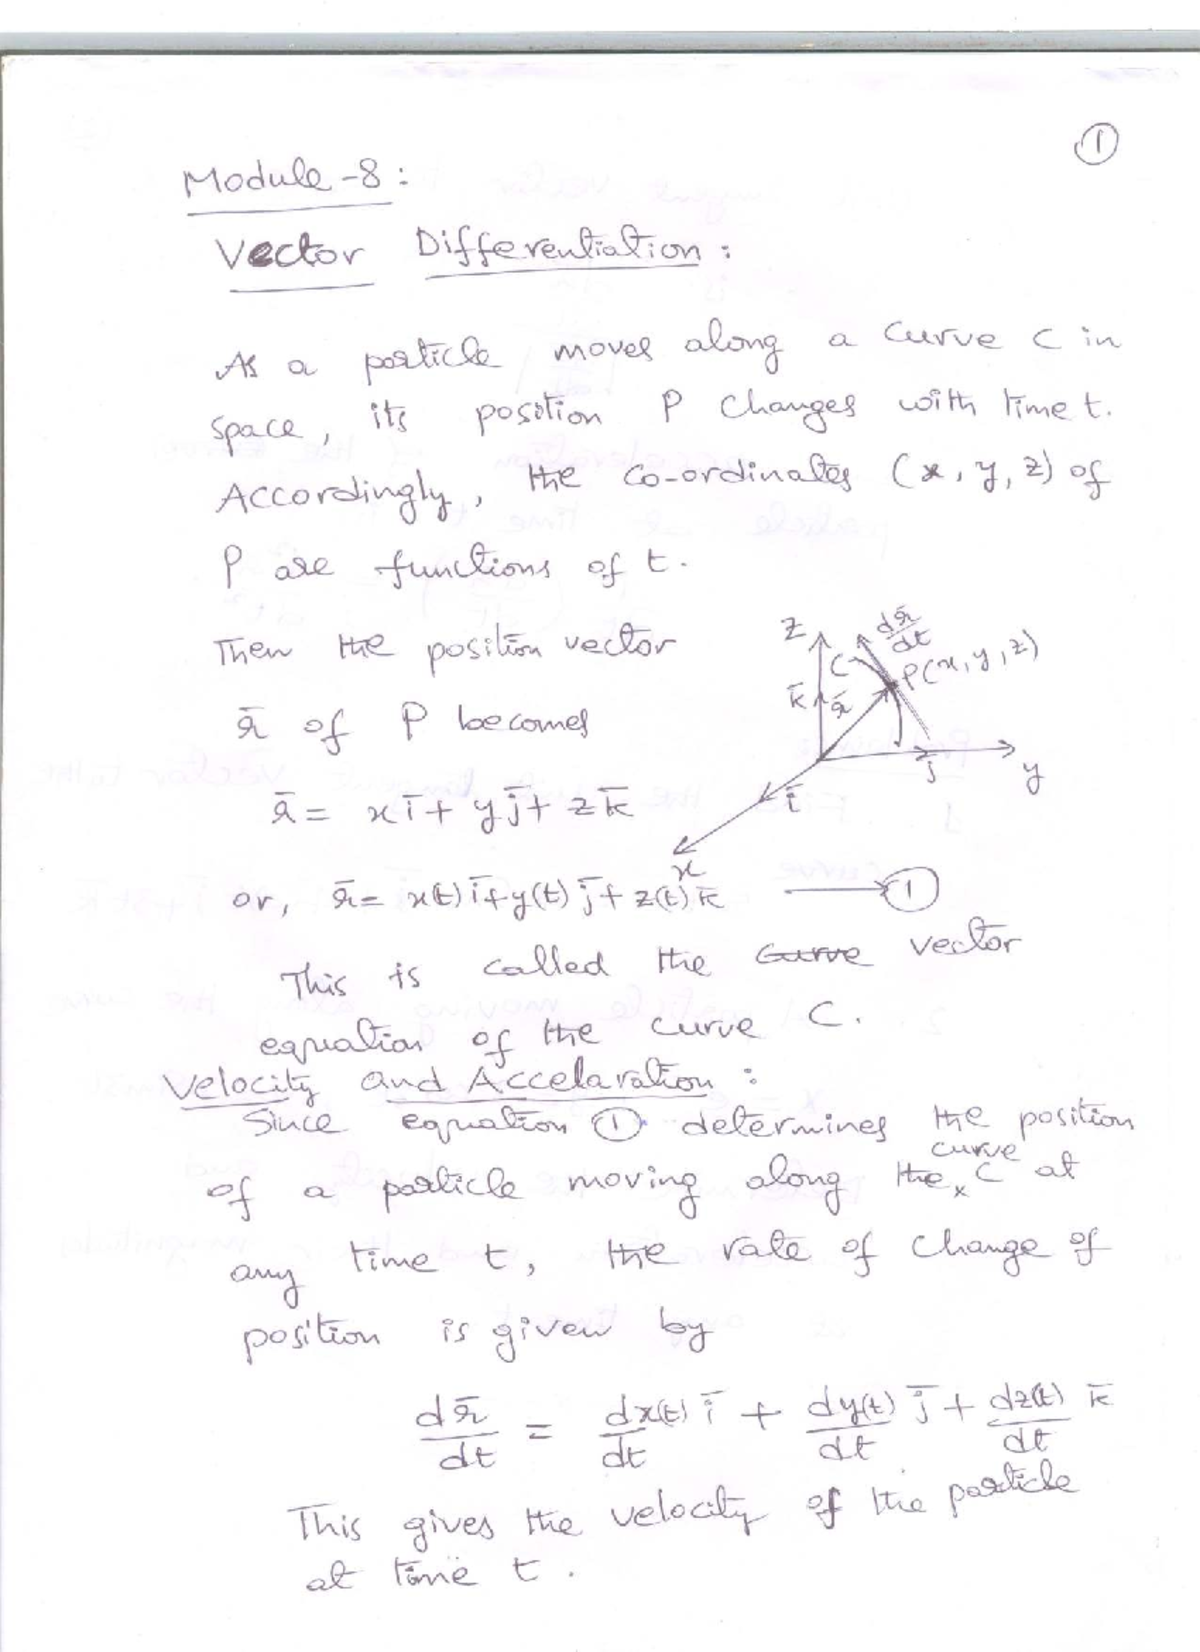 ①
Module-8:
Vector Differentiation:
As a particle moves along a curve C in
space, its position P changes with time t.
Accordingly, the co-ordinates (x, y, z) of
P are functions of t.
Then the position vector
r̄ of P becomes
z
dr̄/dt
C
P(x, y, z)
k̄
r̄
j̄
y
ī
x
r̄ = xī + yj̄ + zk̄
or, r̄ = x(t)ī + y(t)j̄ + z(t)k̄ → ①
This is called the curve vector
equation of the curve C.
Velocity and Accelaration:
Since equation ① determines the position
curve
of a particle moving along the x C at
any time t, the rate of change of
position is given by
dr̄/dt = dx(t)/dt ī + dy(t)/dt j̄ + dz(t)/dt k̄
This gives the velocity of the particle
at time t.